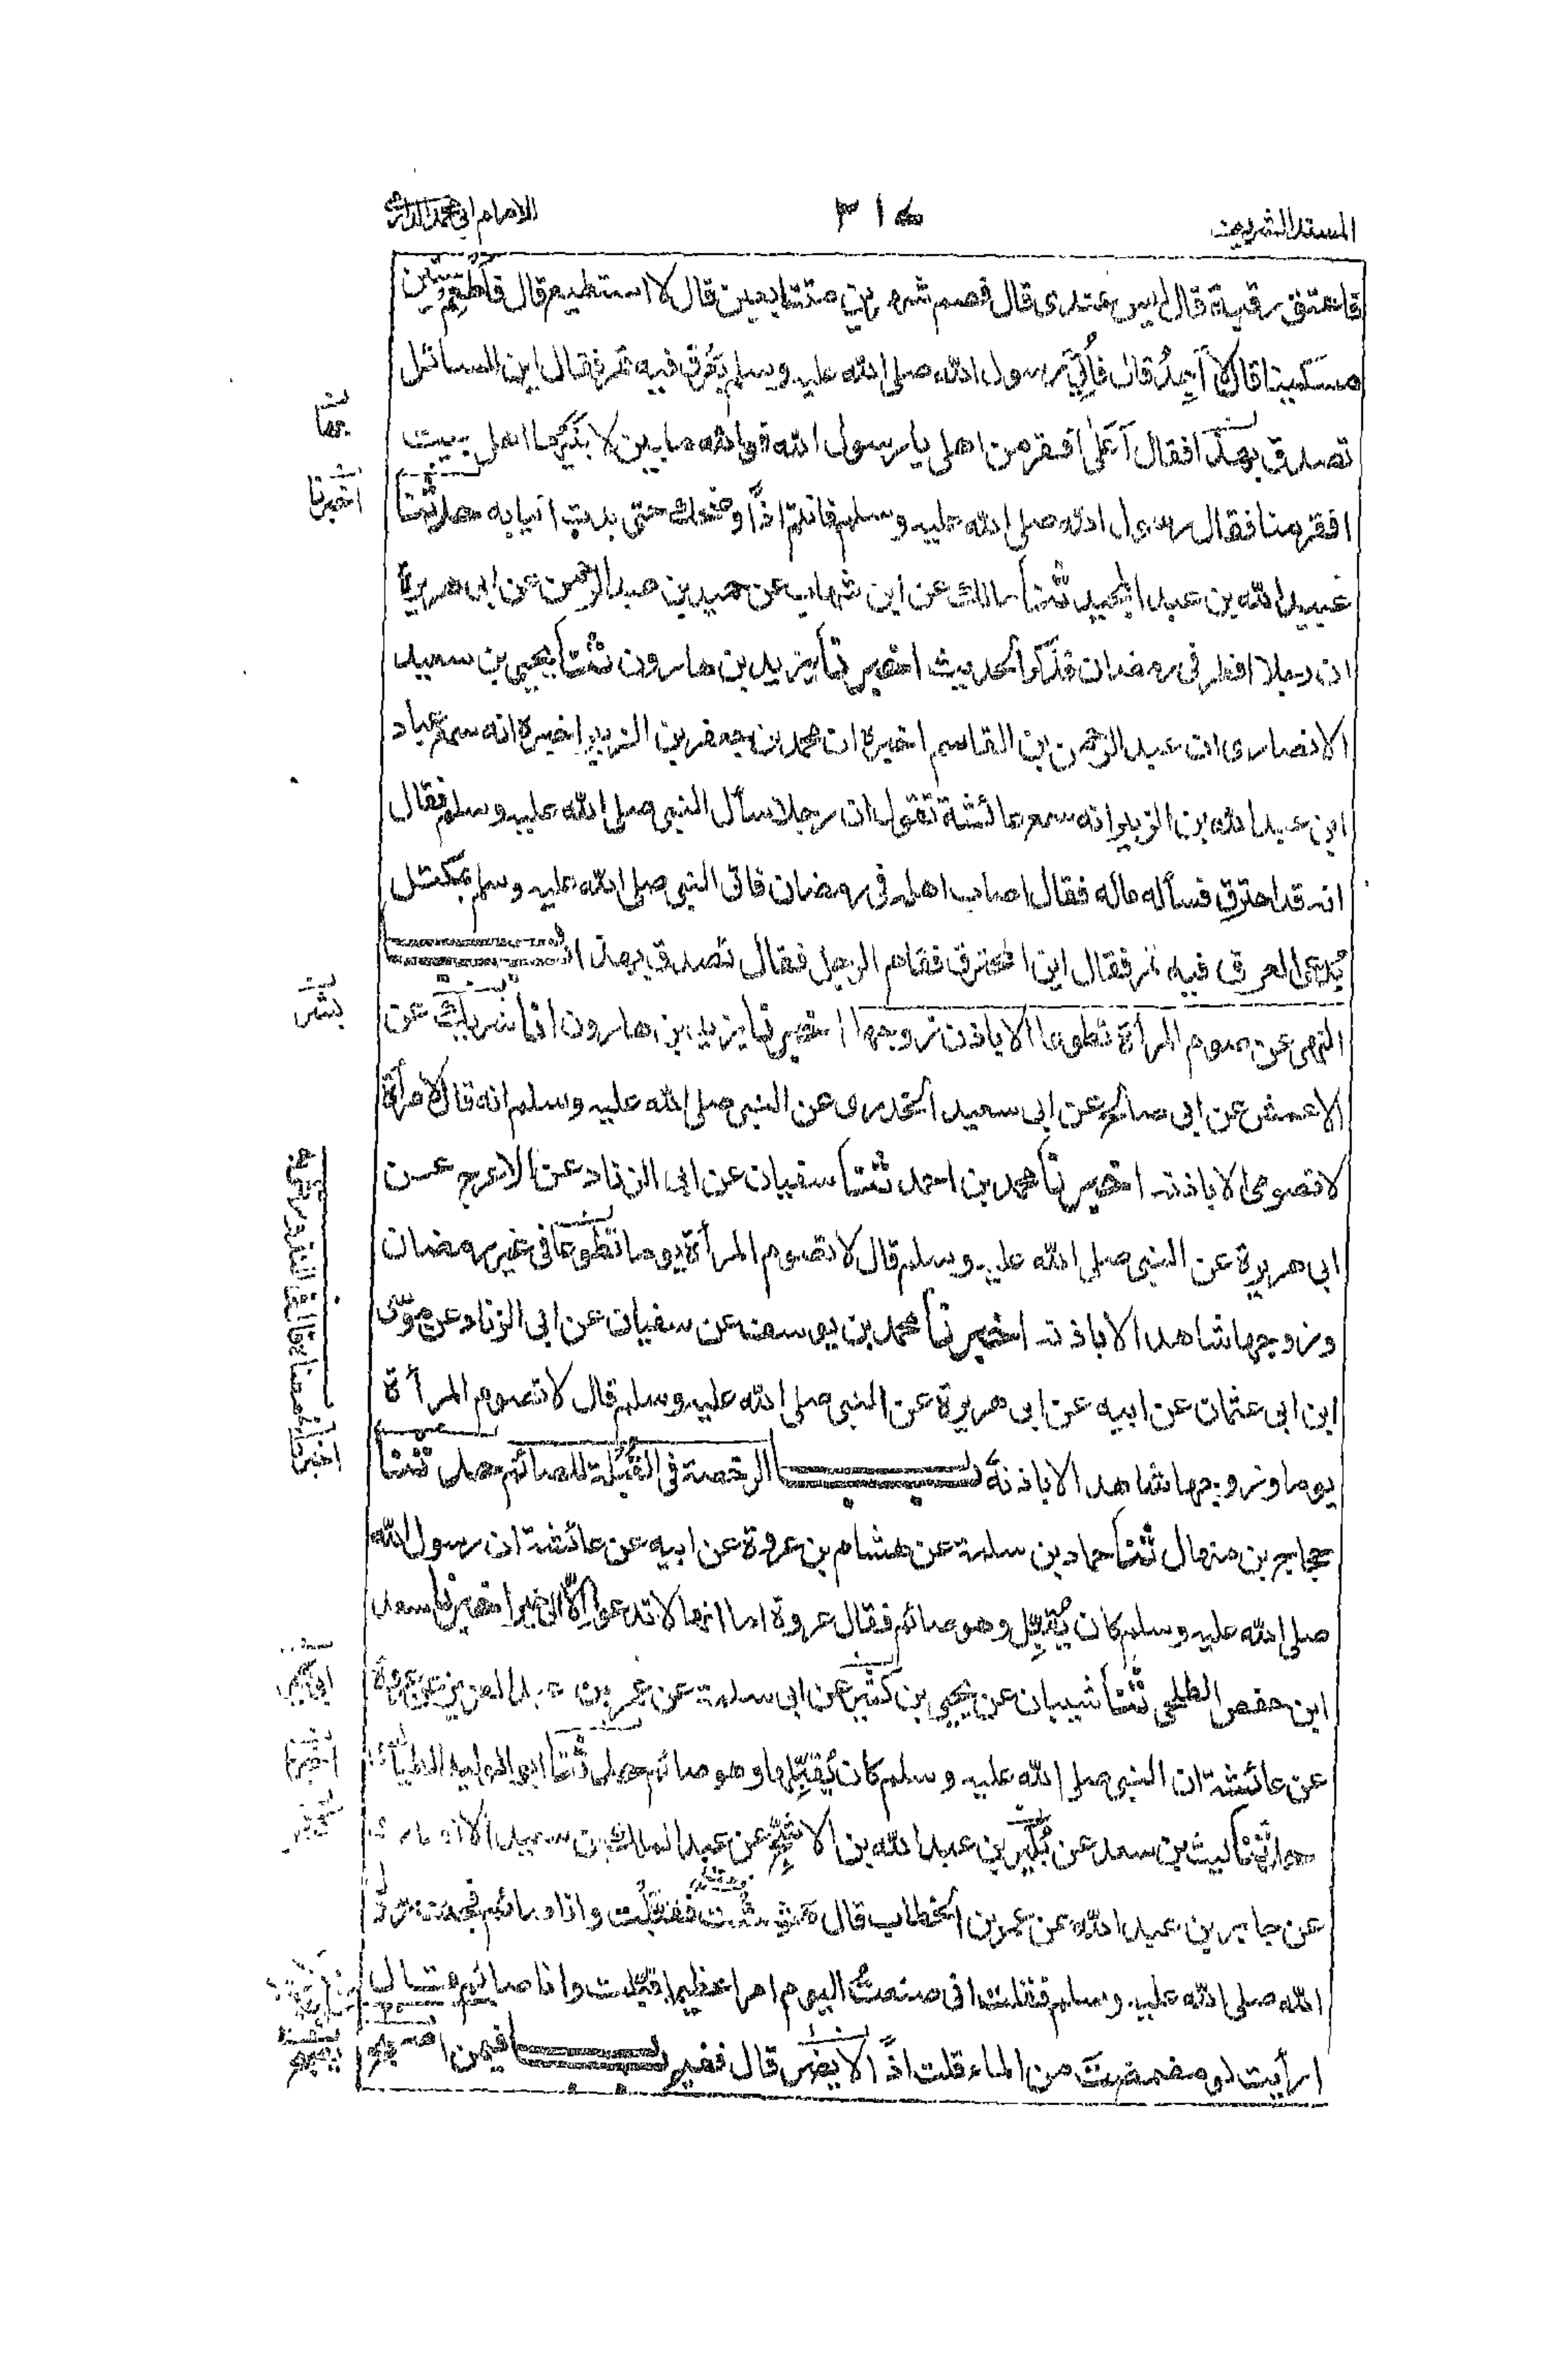 المسند الشريف ٣١٤ الامام ابى محمد الدارمى
فاعتق رقبة قال ليس عندى قال فصم شهرين متتابعين قال لا استطيع قال فاطعم ستين
مسكينا قال لا اَجِدُ قال فاُتِىَ رسول الله صلى الله عليه وسلم بعَرَق فيه تمر فقال اين السائل
تصدق بهذا فقال اَعَلىٰ افقر من اهلى يا رسول الله فوالله ما بين لابتيها اهل بيت
افقر منا فقال رسول الله صلى الله عليه وسلم فانتم اذًا وضحك حتى بدت انيابه حدثنا
عبيد الله بن عبد المجيد ثنا مالك عن ابن شهاب عن حميد بن عبد الرحمن عن ابى هريرة
ان رجلا افطر فى رمضان فذكر الحديث اخبرنا يزيد بن هارون ثنا يحيى بن سعيد
الانصارى ان عبد الرحمن بن القاسم اخبره ان محمد بن جعفر بن الزبير اخبره انه سمع عباد
ابن عبد الله بن الزبير انه سمع عائشة تقول ان رجلا سأل النبى صلى الله عليه وسلم فقال
انه قد احترق فسأله ماله فقال اصاب اهله فى رمضان فاتى النبى صلى الله عليه وسلم بمكتل
يُدعى العرق فيه تمر فقال اين المحترق فقام الرجل فقال تصدق بهذا باب
النهى عن صوم المرأة تطوعا الا باذن زوجها اخبرنا يزيد بن هارون انا شريك عن
الاعمش عن ابى صالح عن ابى سعيد الخدرى عن النبى صلى الله عليه وسلم انه قال لامرأة
لا تصومى الا باذنه اخبرنا محمد بن احمد ثنا سفيان عن ابى الزناد عن الاعرج عن
ابى هريرة عن النبى صلى الله عليه وسلم قال لا تصوم المرأة يوما تطوعا فى غير رمضان
وزوجها شاهد الا باذنه اخبرنا محمد بن يوسف عن سفيان عن ابى الزناد عن موسى
ابن ابى عثمان عن ابيه عن ابى هريرة عن النبى صلى الله عليه وسلم قال لا تصوم المرأة
يوما وزوجها شاهد الا باذنه باب الرخصة فى القُبلة للصائم حدثنا
حجاج بن منهال ثنا حماد بن سلمة عن هشام بن عروة عن ابيه عن عائشة ان رسول الله
صلى الله عليه وسلم كان يُقبّل وهو صائم فقال عروة اما انها لا تدعو الا الى خير اخبرنا سعد
ابن حفص الطلحى ثنا شيبان عن يحيى بن كثير عن ابى سلمة عن عمر بن عبد العزيز عن عروة
عن عائشة ان النبى صلى الله عليه وسلم كان يُقبّلها وهو صائم حدثنا ابو الوليد الطيالسى
حدثنا ليث بن سعد عن بُكَير بن عبد الله بن الاشج عن عبد الملك بن سعيد الانصارى
عن جابر بن عبد الله عن عمر بن الخطاب قال هششت فقبّلت وانا صائم فجئت رسول
الله صلى الله عليه وسلم فقلت انى صنعتُ اليوم امرا عظيما قبّلت وانا صائم قال
ارأيت لو مضمضت من الماء قلت اذًا لا يضر قال ففيم باب فيمن اصبح
بهما
اخبرنا
بشر
ابى كثير
اخبرنا